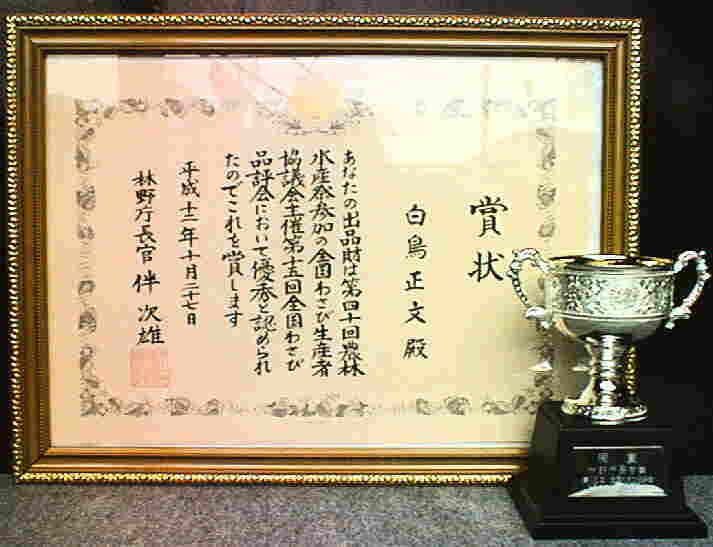 賞状
白鳥正文殿
あなたの出品財は第四十回農林
水産祭参加の全国わさび生産者
協議会主催第十五回全国わさび
品評会において優秀と認められ
たのでこれを賞します
平成十三年十月二十七日
林野庁長官 伴次雄